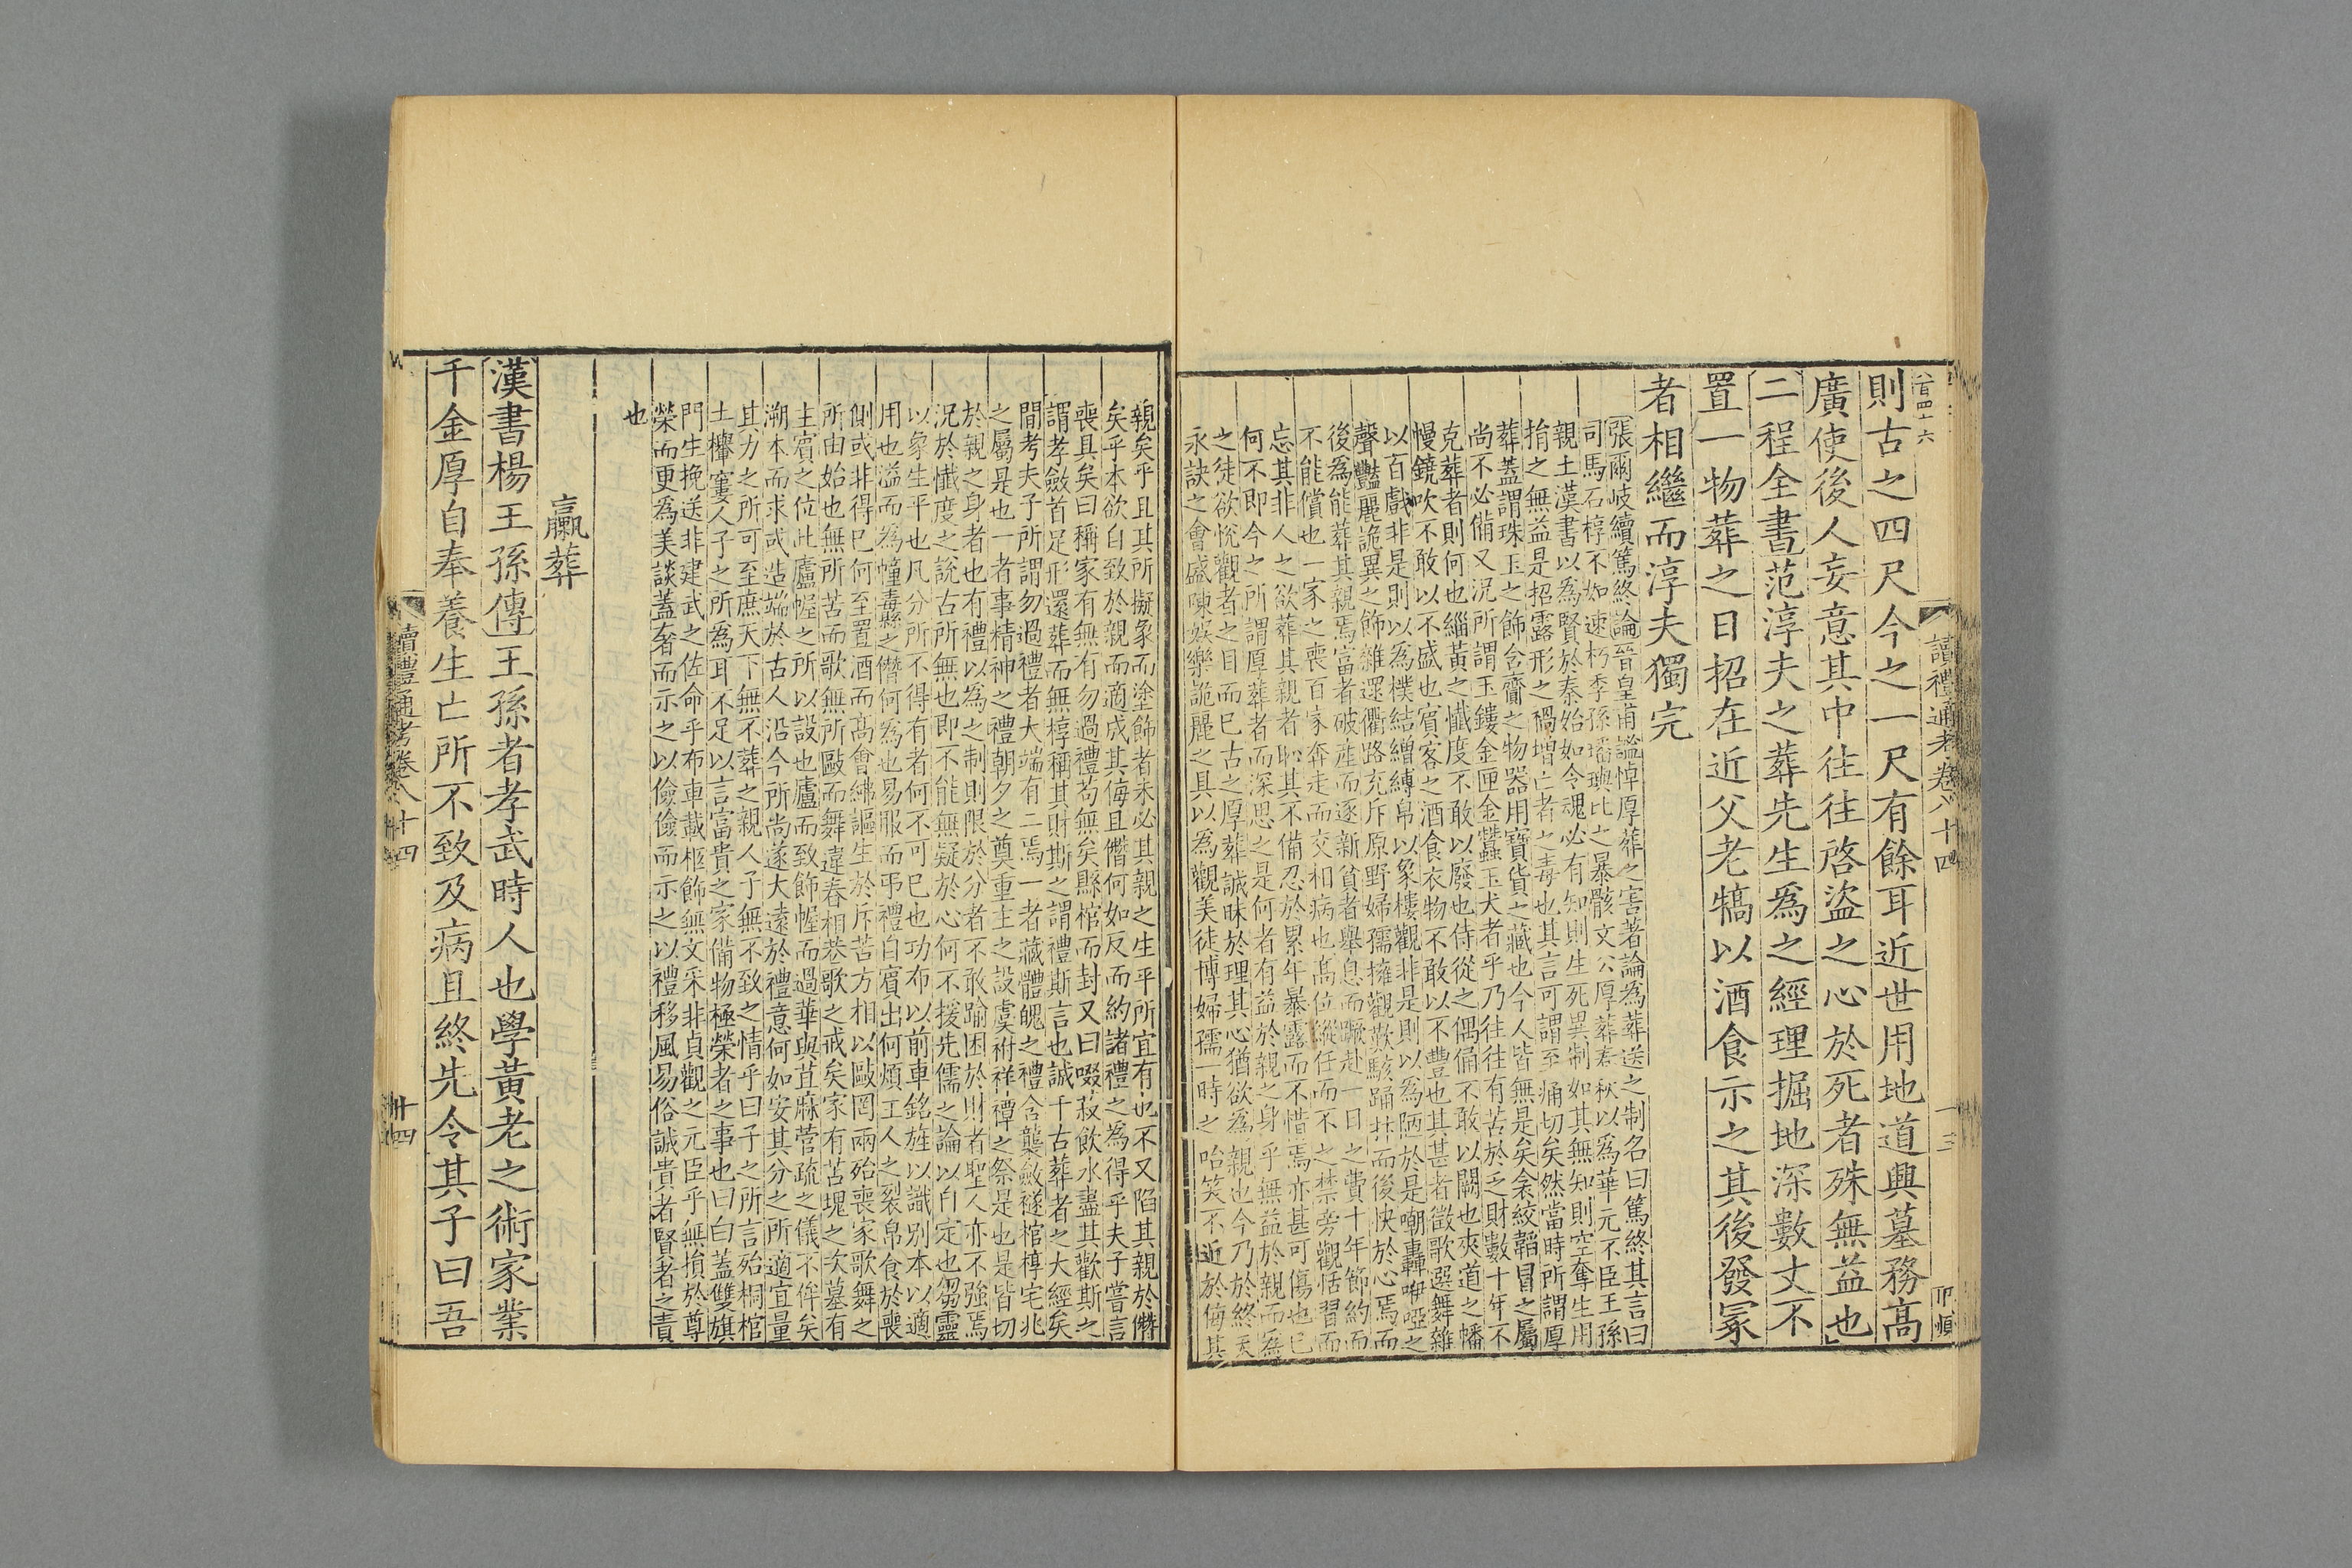 八百四十六
讀禮通考卷八十四
則古之四尺今之一尺有餘耳近世用地道興墓務高
廣使後人妄意其中往往啓盜之心於死者殊無益也
二程全書范淳夫之葬先生爲之經理掘地深數丈不
置一物葬之日招在近父老犒以酒食示之其後發冢
者相繼而淳夫獨完
張爾岐續篤終論晉皇甫謐悼厚葬之害著論為葬送之制名曰篤終其言曰
司馬石椁不如速朽季孫璠璵比之暴骸文公厚葬春秋以為華元不臣王孫
親土漢書以為賢於秦始如令魂必有知則生死異制如其無知則空奪生用
捐之無益是招露形之禍增亡者之毒也其言可謂至痛切矣然當時所謂厚
葬蓋謂珠玉之飾含齎之物器用寶貨之藏也今人皆無是矣衾絞韜冒之屬
尚不必備又況所謂玉鏤金匣金蠶玉犬者乎乃往往有苦於乏財數十年不
克葬者則何也緇黃之懺度不敢以廢也侍從之偶俑不敢以闕也夾道之幡
幔鏡吹不敢以不盛也賓客之酒食衣物不敢以不豐也其甚者徵歌選舞雜
以百戲非是則以為樸結繒縛帛以象樓觀非是則以為陋於是嘲轟咿啞之
聲豔麗詭異之飾雜還衢路充斥原野婦孺擁觀歎駭踊抃而後快於心焉而
後為能葬其親焉富者破產而逐新貧者舉息而蹶赴一日之費十年節約而
不能償也一家之喪百家奔走而交相病也高位縱任而不之禁旁觀恬習而
忘其非人之欲葬其親者恥其不備忍於累年暴露而不惜焉亦甚可傷也已
何不即今之所謂厚葬者而深思之是何者有益於親之身乎無益於親而為
之徒欲悅觀者之目而已古之厚葬誠昧於理其心猶欲為親也今乃於終天
永訣之會盛陳娛樂詭麗之具以為觀美徒博婦孺一時之咍笑不近於侮其
親矣乎且其所擬象而塗飾者未必其親之生平所宜有也不又陷其親於僭
矣乎本欲自致於親而適成其侮且僭何如反而約諸禮之為得乎夫子嘗言
喪具矣曰稱家有無有勿過禮苟無矣縣棺而封又曰啜菽飲水盡其歡斯之
謂孝斂首足形還葬而無椁稱其財斯之謂禮斯言也誠千古葬者之大經矣
間考夫子所謂勿過禮者大端有二焉一者藏體魄之禮含襲斂襚棺椁宅兆
之屬是也一者事精神之禮朝夕之奠重主之設虞祔祥禫之祭是也是皆切
於親之身者也有禮以為之制則限於分者不敢踰困於財者聖人亦不強焉
況於懺度之說古所無也即不能無疑於心何不援先儒之論以自定也芻靈
以象生平也凡分所不得有者何不可已也功布以前車銘旌以識別本以適
用也溢而為幢纛縣之僭何為也易服而弔禮自賓出何煩工人之裂帛食於喪
側或非得已何至置酒而高會紼謳生於斥苦方相以毆罔兩殆喪家歌舞之
所由始也無所苦而歌無所毆而舞違舂相巷歌之戒矣家有苫塊之次墓有
主賓之位此廬幄之所以設也廬而致飾幄而過華與苴麻菅疏之儀不侔矣
溯本而求或造端於古人沿今所尚遂大遠於禮意何如安其分之所適宜量
其力之所可至庶天下無不葬之親人子無不致之情乎曰子之所言殆桐棺
土欙窶人子之所為耳不足以言富貴之家備物極榮者之事也曰白蓋雙旗
門生挽送非建武之佐命乎布車載柩飾無文采非貞觀之元臣乎無損於尊
榮而更為美談蓋奢而示之以儉儉而示之以禮移風易俗誠貴者賢者之責
也
臝葬
漢書楊王孫傳王孫者孝武時人也學黃老之術家業
千金厚自奉養生亡所不致及病且終先令其子曰吾
讀禮通考卷八十四
十四